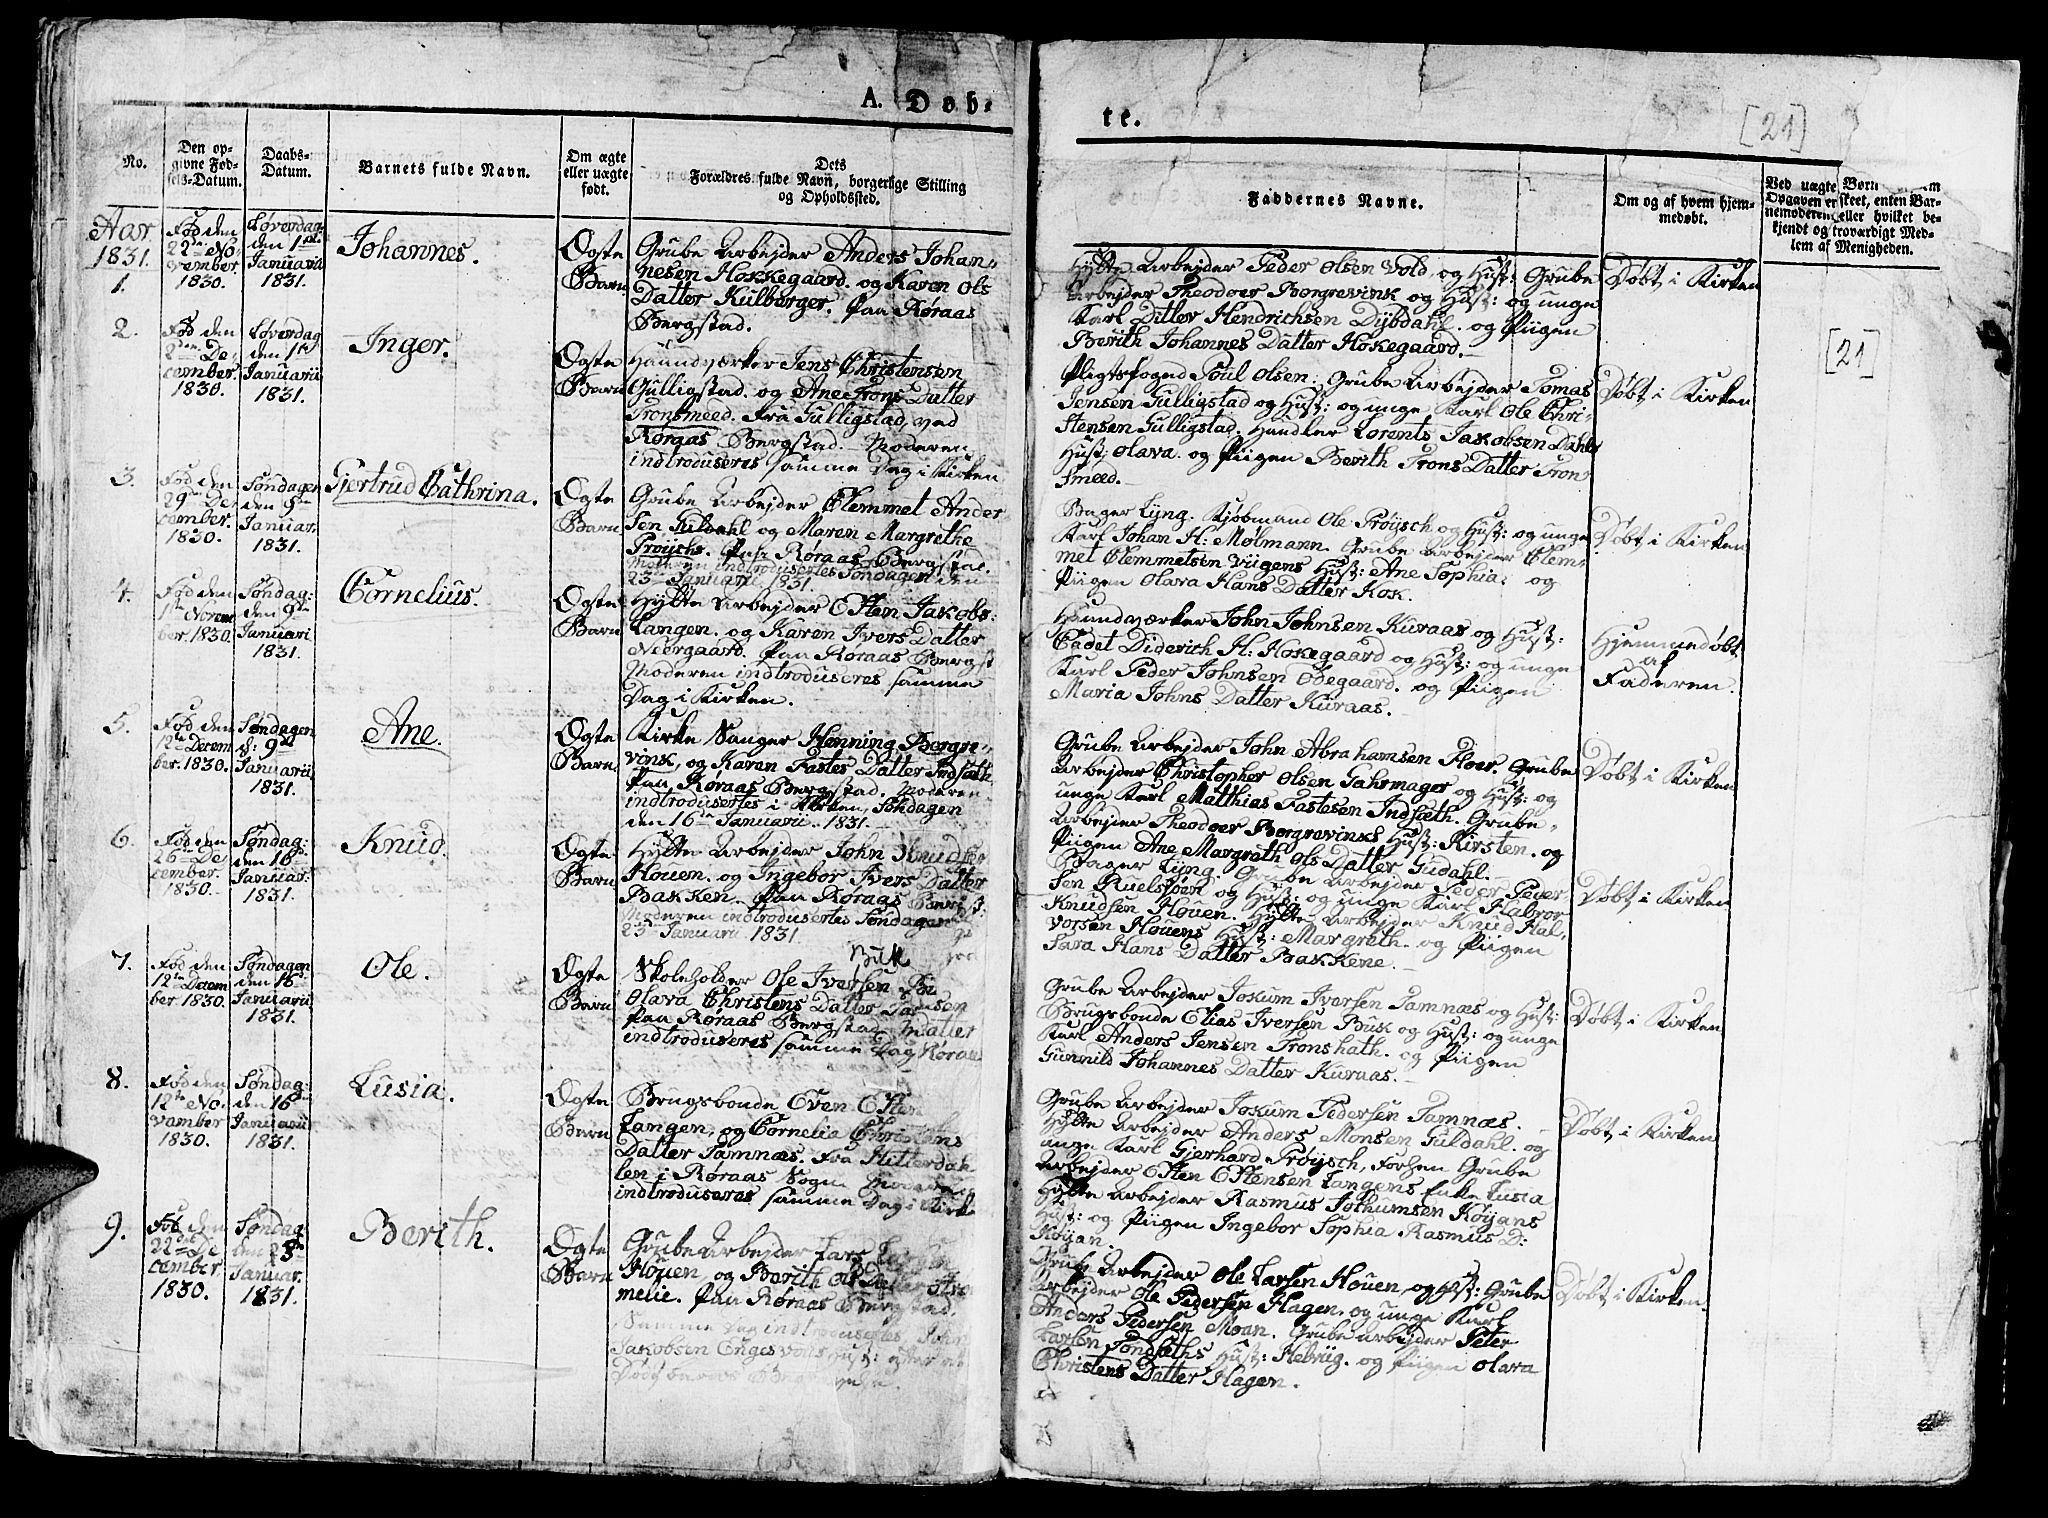 A. Døb-
te.
[21]
No.
Den op-
givne Fød-
sels-Datum.
Daabs-
Datum.
Barnets fulde Navn.
Om ægte
eller uægte
født.
Dets
Forældres fulde Navn, borgerlige Stilling
og Opholdssted.
Faddernes Navne.
Om og af hvem hjem-
medøbt.
Ved uægte Børn
Opgaven er skeet, enten Bar-
nemoderen eller hvilket be-
kjendt og troværdigt Med-
lem af Menigheden.
[21]
Aar
1831.
1.
Fød den
22de No-
vember.
1830.
Løverdag
den 1ste
Januarii
1831.
Johannes.
Ægte
Barn
Grube Arbejder Anders Johan-
nesen Hokkegaard. og Karen Ols
Datter Kulberger. paa Røraas
Bergstad.
Hytte Arbejder Peder Olsen Vold, og Hust: Grube
Arbejder Theodoer Borgrevink og Hust: og unge
Karl Ditler Hendrichsen Dybdahl. og Piigen
Berith Johannes Datter Hokegaard.
Døbt i Kirken
2.
Fød den
2den De-
cember.
1830.
Løverdag
den 1te
Januarii
1831.
Inger.
Ægte
Barn
Haandværker Jens Christensen
Gulligstad. og Ane Trons Datter
Tronsmeed. fra Gulligstad, ved
Røraas Bergstad. Moderen
indtroduseres samme Dag i Kirken
Pligtsfoged Poul Olsen. Grube Arbejder Tomas
Jensen Gulligstad og Hust: og unge Karl Ole Chri-
stensen Gulligstad. Handler Lorents Jakobsen Dahls
Hust, Olava. og Piigen Berith Trons Datter Tron
Smeed.
Døbt i Kirken
3.
Fød den
29de De-
cember.
1830.
Søndagen
den 9de
Januar.
1831.
Gjertrud Cathrina.
Ægte
Barn
Grube Arbejder Clemmet Ander
sen Guldahl og Maren Margrethe
Prøysch. Paa Røraas Bergstad.
Moderen indtrodusertes Søndagen den
23de Januarii 1831.
Bager Lyng. Kjøbmand Ole Prøysch og Hust: og unge
Karl Johan H: Mølmann. Grube Arbejder Clem-
met Clemmetsen Viigens Hust: Ane Sophia. og
Piigen Olava Hans Datter Kok.
Døbt i Kirken
4.
Fød den
1te Novem
ber. 1830.
Søndag:
den 9de
Januarii
1831.
Cornelius.
Ægte
Barn
Hytte Arbejder Esten Jakobs:
Langen. og Karen Ivers Datter
Neergaard. Paa Røraas Bergst
Moderen indtroduseres samme
Dag i Kirken.
Haandværker John Johnsen Kuraas og Hust:
Cadet Diderich H: Hokegaard og Hust: og unge
Karl Peder Johnsen Odegaard. og Piigen
Maria Johns Datter Kuraas.
Hjemmedøbt
af
Faderen.
5.
Fød den
12te Decem
ber. 1830.
Søndagen
d: 9de
Januarii
1831.
Ane.
Ægte
Barn
Kirke Sanger Henning Borgre-
vink, og Karen Fastes Datter Indsæth
Paa Røraas Bergstad. Moderen
indtrodusertes i Kirken, Søndagen
den 16de Januarii. 1831.
Grube Arbejder John Abrahamsen Floer. Grube
Arbejder Christopher Olsen Gahrmager og Hust: og
unge Karl Matthias Fastesen Indsæth. Grube-
Arbejder Theodoer Borgrevinks Hust: Kirsten. og
Piigen Ane Margreth Ols Datter Gudahl.
Døbt i Kirken
6.
Fød den
26de De-
cember.
1830.
Søndag:
den 16de
Januar.
1831.
Knud.
Ægte
Barn
Hytte Arbejder John Knudsen
Houen. og Ingebor Ivers Datter
Bakken. Paa Røraas
Moderen indtrodusertes Søndagen
23de Januarii 1831
Bager Lyng. Grube Arbejder Peder Peder
sen Ruelsjøen og Hust: og unge Karl Halvor
Knudsen Houen. Hytte Arbejder Knud Hal-
vorsen Houens Hust: Margreth. og Piigen
Sara Hans Datter Bakkene.
Døbt i Kirken
7.
Fød den
12te Decem
ber 1830.
Søndagen
den 16de
Januarii
1831.
Ole.
Ægte
Barn
Busk
Skoleholder Ole Iversen
Olava Christens Datter
Paa Røraas Bergstad
indtroduseres samme Dag Røraas
Grube Arbejder Jokum Iversen Tamnæs og Hust:
Brugsbonde Elias Iversen Busk og Hust: og unge
Karl Anders Jensen Tronshath. og Piigen
Gunnild Johannes Datter Kuraas.
Døbt i Kirken
8.
Fød den
12te No-
vember
1830.
Søndag:
den 16de
Januarii
1831.
Lusia.
Ægte
Barn
Brugsbonde Even Esten
Langen, og Cornelia Christens
Datter Tamnæs. fra Hitterdah
len i Røraas Sogn Moderen
indtroduseres samme Dag i Kirke
Grube Arbejder Jokum Pedersen Tamnæs.
Hytte Arbejder Anders Monsen Guldahl. og
unge Karl Gjerhard Prøysch, forhen Grube
Arbejder Esten Estensen Langens Enke Lusia
Hytte Arbejder Rasmus Jothumsen Køyans
Hust: og Piigen Ingebor Sophia Rasmus D:
Køyan.
Døbt i Kirken
9.
Fød den
22de De
cember
1830.
Søndag
den 23de
Januar.
1831.
Berith.
Ægte
Barn
Grube Arbejder Lars
Houen, og Berith Ols Datter
melie. Paa Røraas Bergstad.
Samme Dag indtrodusertes John
Jakobsen Engesvolds Hust: efter et
Dødf
Grube Arbejder Ole Larsen Houen, og Hust: Grube
Arbejder Ole Pedersen Hagen. og unge Karl
Anders Pedersen Moan. Grube Arbejder Peter
Larsen Tonsæths Hust: Hebrig. og Piigen Olava
Christens Datter Hagen.
Døbt i Kirken.